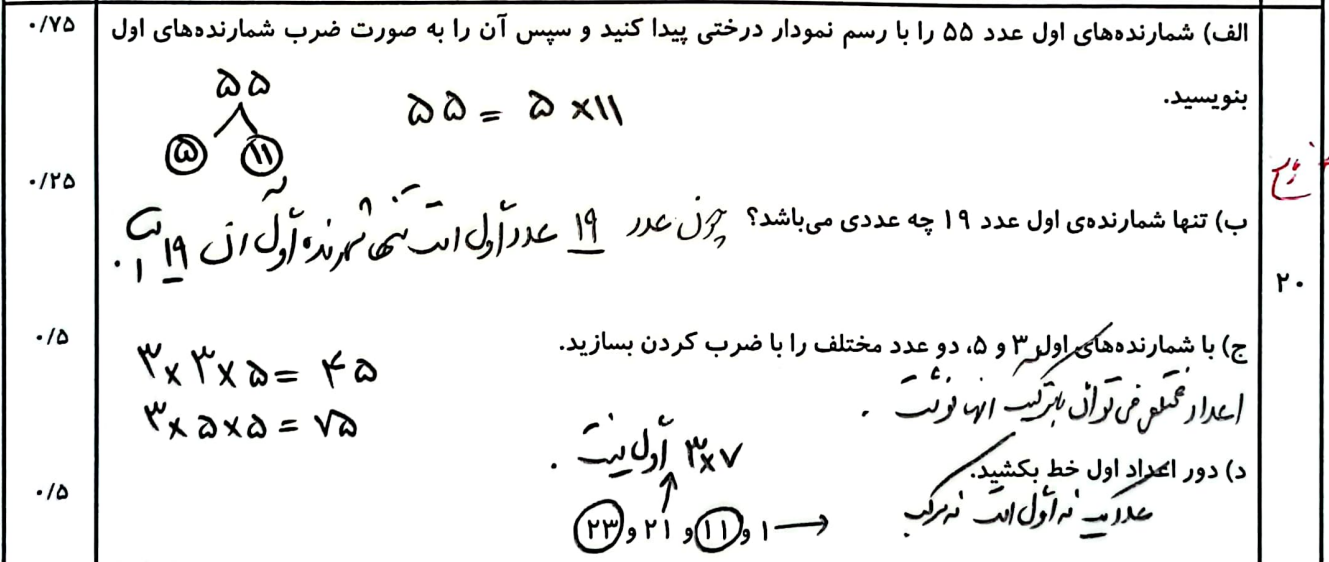 الف) شمارنده‌های اول عدد ۵۵ را با رسم نمودار درختی پیدا کنید و سپس آن را به صورت ضرب شمارنده‌های اول ۰/۷۵
بنویسید.
۵۵
۵ ۱۱
۵۵ = ۵ × ۱۱
ب) تنها شمارنده‌ی اول عدد ۱۹ چه عددی می‌باشد؟ چون عدد ۱۹ عدد اول است تنها شمارنده اول آن ۱۹ است. ۰/۲۵
۲۰
ج) با شمارنده‌های اول ۳ و ۵، دو عدد مختلف را با ضرب کردن بسازید. ۰/۵
۳ × ۳ × ۵ = ۴۵
اعداد مختلفی می‌توان با ترکیب آنها نوشت.
۳ × ۵ × ۵ = ۷۵
د) دور اعداد اول خط بکشید. ۰/۵
۳×۷ اول نیست.
۱ و ۱۱ و ۲۱ و ۲۳
عدد یک نه اول است نه مرکب